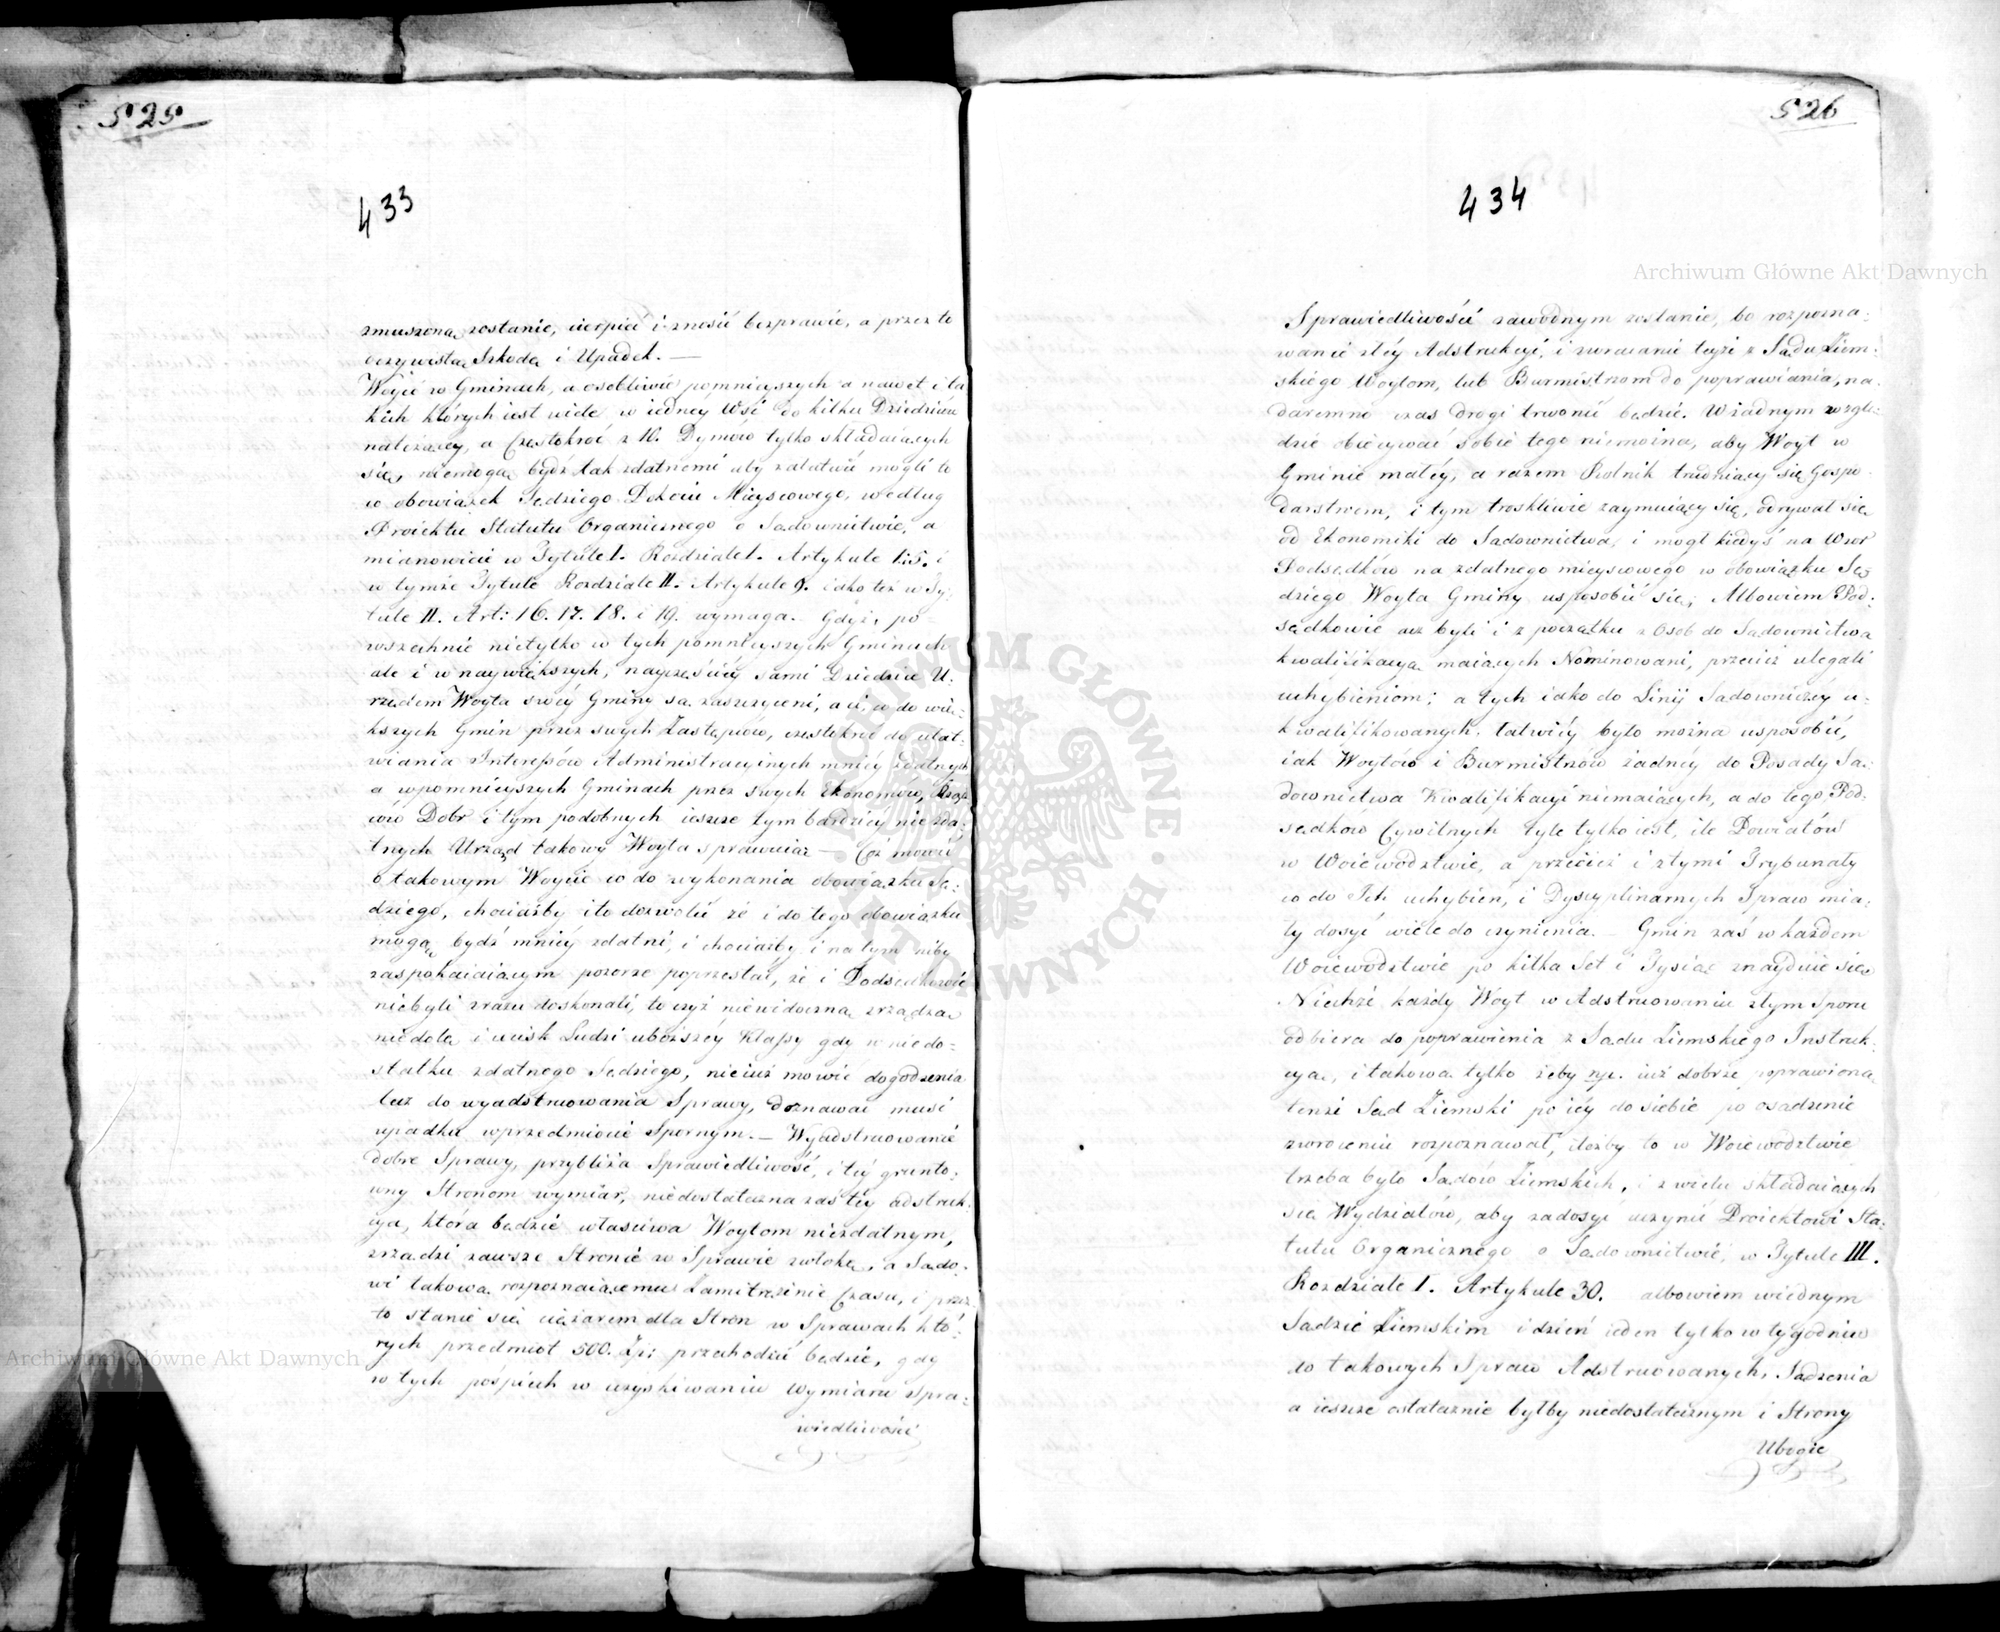 525
433
zmuszoną zostanie, cierpieć i znosić bezprawie, a przez to
oczywistą Szkodę i Upadek. —
Woyci w Gminach, a osobliwie pomnieyszych a nawet i ta
kich których iest wiele w iedney Wsi do kilku Dziedziców
należącey, a Częstokroć z 10. Dymów tylko składaiących
się, niemogą bydź tak zdatnemi aby załatwić mogli to
co obowiązek Sędziego Pokoiu Mieyscowego, według
Proiektu Statutu Organicznego o Sądownictwie, a
mianowicie w Tytule I. Rozdziale I. Artykule 1. 5. i
w tymże Tytule Rozdziale II. Artykule 9. iako też w Ty-
tule II. Art: 16. 17. 18. i 19. wymaga. Gdyż, po-
wszechnie nietylko w tych pomnieyszych Gminach
ale i w naywiększych, nayczęściey sami Dziedzice U-
rzędem Woyta swéy Gminy są zaszczyceni, a ci, co do wię-
kszych Gmin przez swych Zastępców, częstokroć do ułat-
wiania Interessów Administracyinych mniéy zdatnych
a w pomnieyszych Gminach przez swych Ekonomów, Rząd-
ców Dobr i tym podobnych ieszcze tym bardziéy niezda-
tnych Urząd takowy Woyta sprawuią — Coż mówić
o takowym Woycie co do wykonania obowiązku Sę-
dziego, chociażby i to dozwolić że i do tego obowiązku
mogą bydź mniéy zdatni, i chociażby i na tym niby
zaspokaiaiącym pozorze poprzestać, że i Podsędkowie
niebyli zrazu doskonali, to czyż niewidoczną zrządza
niedolę i ucisk Ludzi uboższéy Klassy gdy w niedo-
statku zdatnego Sędziego, nieiuż mowić do godzenia
lecz do wyadstruowania Sprawy, doznawać musi
upadku w przedmiocie Spornym. — Wyadstruowanie
dobre Sprawy, przybliża Sprawiedliwość, i téy grunto-
wny Stronom wymiar, niedostateczna zaś téy adstruk-
cya, która będzie właściwa Woytom niezdatnym,
zrządzi zawsze Stronie w Sprawie zwłokę, a Sądo-
wi takową rozpoznaiącemu Zamitrężenie Czasu, i prze-
to stanie się ciężarem dla Stron w Sprawach któ-
rych przedmiot 500. Zp: przechodzić będzie, gdy
w tych pospiech w uzyskiwaniu Wymiaru Spra-
wiedliwości
526
434
Sprawiedliwości zawodnym zostanie, bo rozpozna-
wanie złéy Adstrukcyi, i zwracanie teyże z Sądu Ziem-
skiego Woytom, lub Burmistrzom do poprawiania, na-
daremno czas drogi trwonić będzie. W żadnym wzglę-
dzie obiecywać sobie tego niemożna, aby Woyt w
Gminie małéy, a razem Rolnik trudniący się Gospo-
darstwem, i tym troskliwie zaymuiący się, odrywał się
od Ekonomiki do Sądownictwa, i mogł kiedyś na Wzor
Podsędków na zdatnego mieyscowego w obowiązku Sę-
dziego Woyta Gminy usposobić się; Albowiem Pod-
sędkowie acz byli i z początku z Osob do Sądownictwa
kwalifikacyą maiących Nominowani, przecież ulegali
uchybieniom; a tych iako do Linij Sądowniczéy u-
kwalifikowanych, łatwiéy było można usposobić,
iak Woytów i Burmistrzów żadnéy do Posady Są-
downictwa Kwalifikacyi niemaiących, a do tego Pod-
sędków Cywilnych tyle tylko iest, ile Powiatów
w Woiewodztwie, a przecież i z tymi Trybunały
co do Ich uchybień, i Dyscyplinarnych Spraw mia-
ły dosyć wiele do czynienia. — Gmin zaś w każdem
Woiewodztwie po kilka Set i Tysiąc znayduie się
Niechże każdy Woyt w Adstruowaniu złym Sporu
odbiera do poprawienia z Sądu Ziemskiego Instruk-
cyą, i takową tylko żeby np. iuż dobrze poprawioną
tenże Sąd Ziemski po iéy do siebie po osądzenie
zwroceniu rozpoznawał, ileżby to w Woiewodztwie
trzeba było Sądów Ziemskich, i z wielu składaiących
się Wydziałów, aby zadosyć uczynić Proiektowi Sta-
tutu Organicznego o Sądownictwie, w Tytule III.
Rozdziale I. Artykule 30. albowiem w iednym
Sądzie Ziemskim i dzień ieden tylko w tygodniu
do takowych Spraw Adstruowanych, Sądzenia
a ieszcze ostatecznie byłby niedostatecznym i Strony
Ubogie
Archiwum Główne Akt Dawnych
Archiwum Główne Akt Dawnych
ARCHIWUM GŁÓWNE AKT DAWNYCH